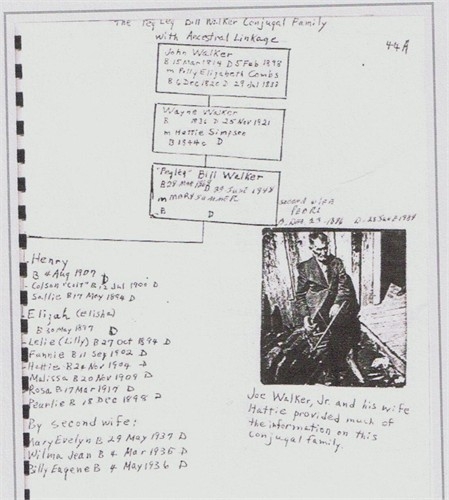 The Peg Leg Bill Walker Conjugal Family
with Ancestral Linkage
44A
John Walker
B 15 Mar 1814 D 5 Feb 1898
m Polly Elizabeth Combs
B 6 Dec 1820 D 29 Jul 1883
Wayne Walker
B 1836 D 25 Nov 1921
m Hattie Simpson
B 1844c D
"Pegleg" Bill Walker
B 29 Mar
m
B D
second wife
PEARL
B. Dec. 23 1886 D.
Henry
B 4 Aug 1907 D
Colson "Colt" B 12 Jul 1900 D
Sallie B 17 May 1894 D
Elijah (elisha)
B 30 May 1897 D
Lelie (Lilly) B 27 Oct 1894 D
Fannie B 11 Sep 1902 D
Hattie B 26 Nov 1904 D
Malissa B 20 Nov 1909 D
Rosa B 7 Mar 1917 D
Pearlie B 18 Dec 1898 D
By second wife:
Mary Evelyn B 29 May 1937 D
Wilma Jean B 4 Mar 1935 D
Billy Eugene B 4 May 1936 D
Joe Walker, Jr. and his wife
Hattie provided much of
the information on this
Conjugal family.